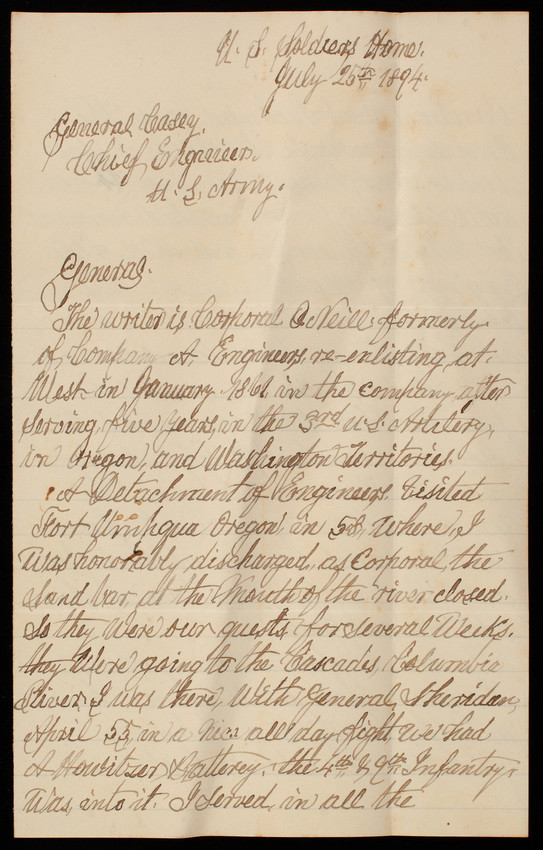 U. S. Soldiers Home.
July 25th 1894.
General Casey.
Chief Engineer.
U. S. Army.
General.
The writer is Corporal O Neill, formerly
of Company A. Engineers, re-enlisting, at.
West in January 1861, in the company, after
serving, five years, in the 3rd U.S. Artilery,
in Oregon, and Washington Territories.
A Detachment of Engineers Visited
Fort Umpqua Oregon, in 58, where, I
Was honorably discharged, as Corporal, the
Sand bar, at the Mouth of the river closed.
So they Were our guests, for several Weeks.
they Were going to the Cascades, Columbia
River, I was there, With General, Sheridan,
April 55, in a nice all day fight, we had
A Howitzer Batterey, the 4th & 9th Infantry,
Was, into it. I served, in all the